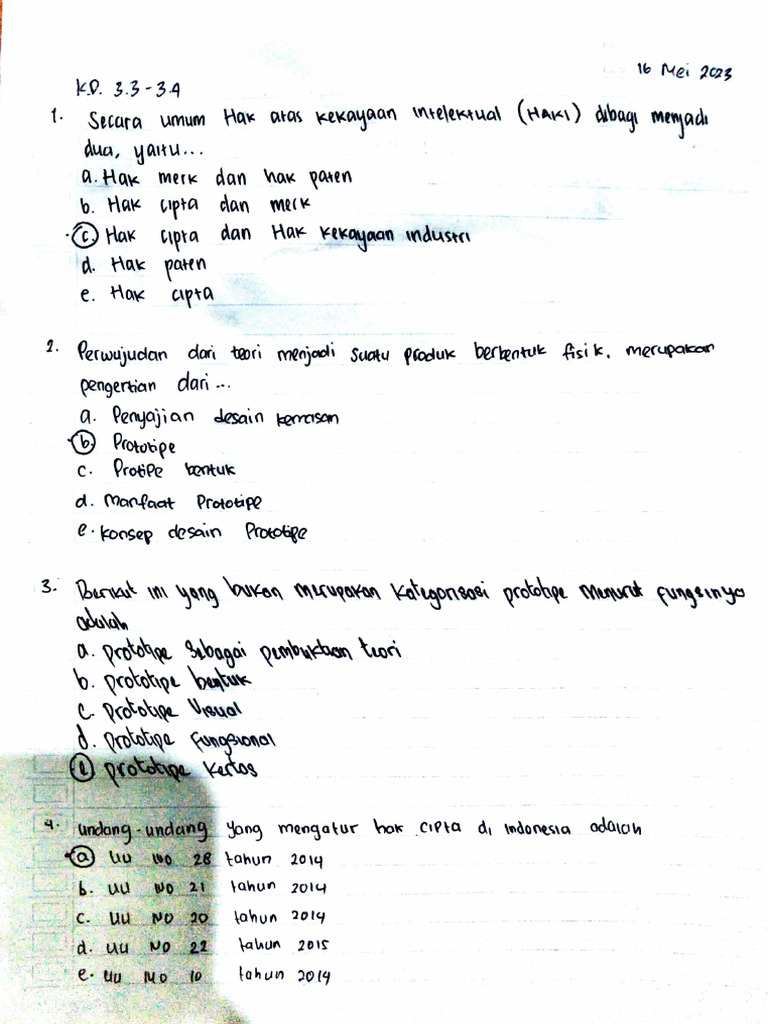 16 Mei 2023
K.D. 3.3-3.4
1. Secara umum Hak atas Kekayaan Intelektual (HAKI) dibagi menjadi
dua, yaitu...
a. Hak merk dan hak paten
b. Hak cipta dan merk
c. Hak cipta dan Hak kekayaan industri
d. Hak paten
e. Hak cipta
2. Perwujudan dari teori menjadi suatu produk berbentuk fisik. merupakan
pengertian dari...
a. Penyajian desain kemasan
b. Prototipe
c. Protipe bentuk
d. Manfaat Prototipe
e. Konsep desain Prototipe
3. Berikut ini yang bukan merupakan kategorisasi prototipe menurut fungsinya
adalah
a. prototipe sebagai pembuktian teori
b. prototipe bentuk
c. prototipe Visual
d. prototipe fungsional
e. prototipe kertas
4. undang-undang yang mengatur hak cipta di Indonesia adalah
a. UU NO 28 tahun 2014
b. UU NO 21 tahun 2014
c. UU NO 20 tahun 2014
d. UU NO 22 tahun 2015
e. UU NO 10 tahun 2014